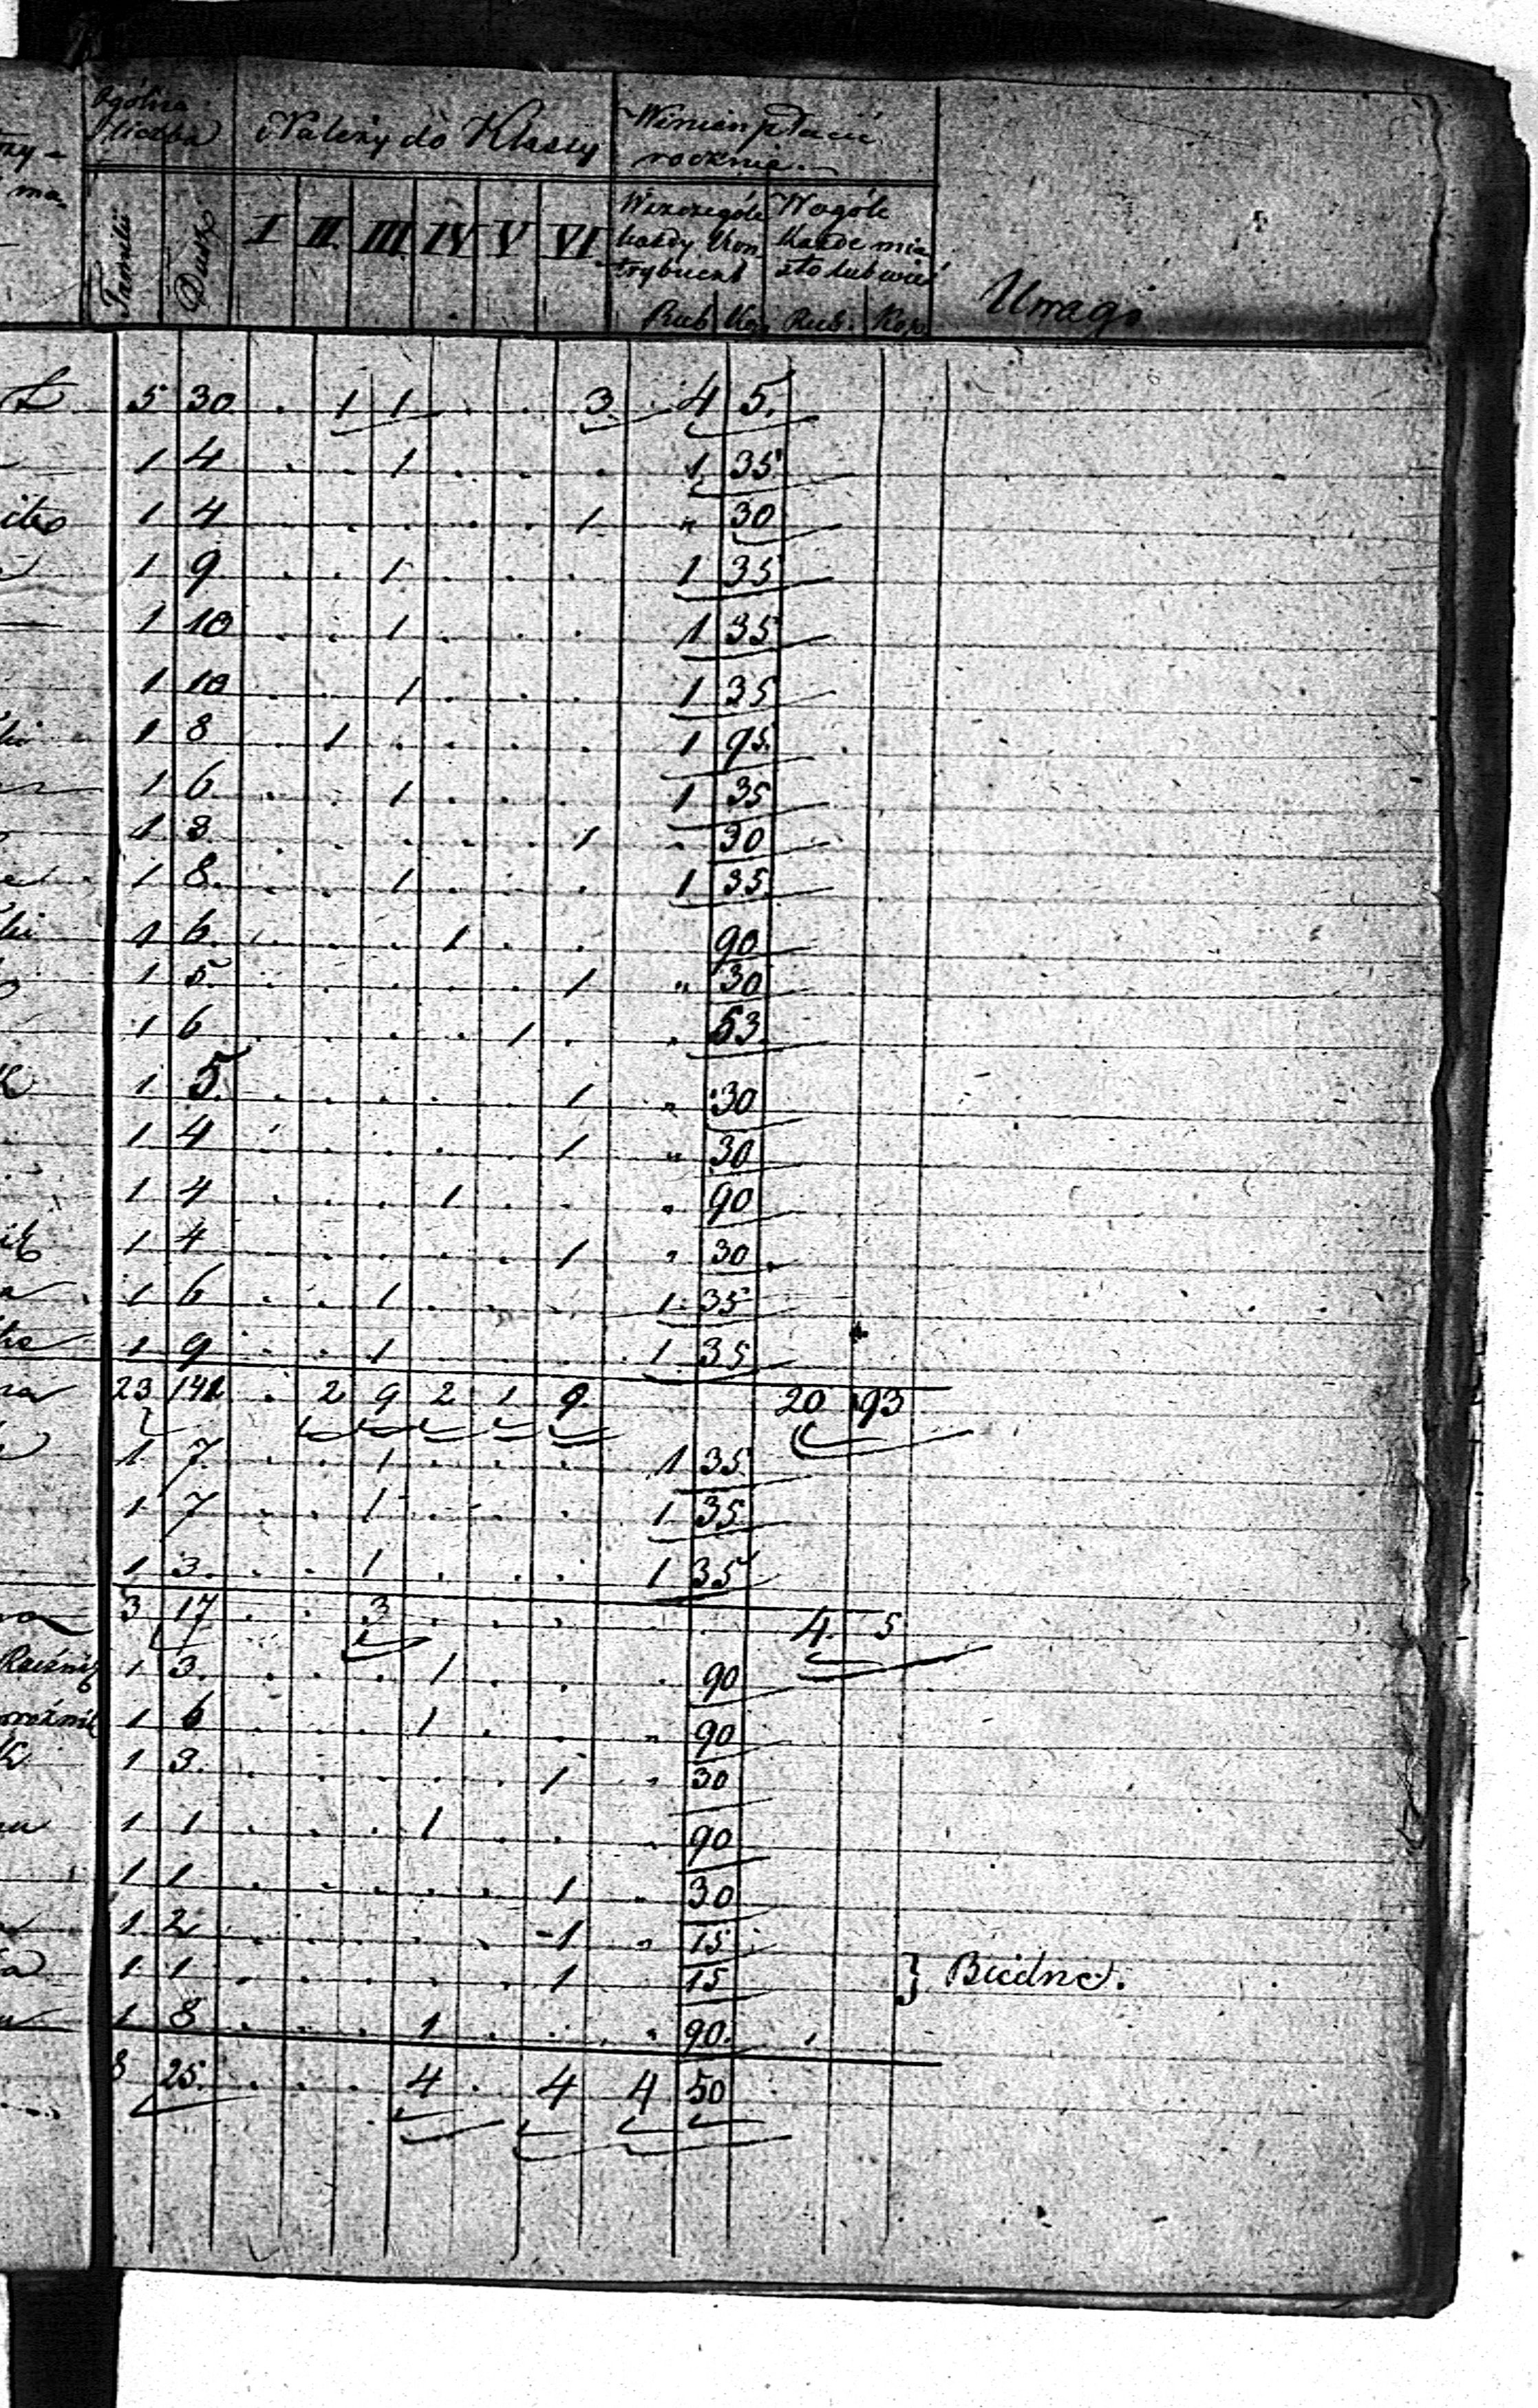 Ogólna liczba Należy do Klassy Winien płacić
rocznie
Familii Dusz I II III IV V VI Wszczególe każdy Kontrybuent Wogóle Każde miasto lub wieś Uwagi
Rub Kop Rub. Kop.
5 30 . 1 1 . . 3 4 5.
1 4 . . 1 . . . 1 35
1 4 . . . . . 1 " 30
1 9 . . 1 . . . 1 35
1 10 . . 1 . . . 1 35
1 10 . . 1 . . . 1 35
1 8 . 1 . . . . 1 95.
1 6 . . 1 . . . 1 35
1 3 . . . . . 1 . 30
1 8. . . 1 . . . 1 35.
1 6. . . . 1 . . 90
1 5. . . . . . 1 " 30
1 6 . . . . 1 . . 53.
K 1 5. . . . . . 1 " 30
1 4 . . . . . 1 " 30
1 4 . . . 1 . . . 90
1 4 . . . . . 1 " 30
1 6 . . 1 . . . 1. 35
1 9 . . 1 . . . 1 35
23 141 . 2 9 2 1 9. 20 93
1 7. . . 1 . . . 1 35.
1 7 . . 1 . . . 1 35
1 3. . . 1 . . . 1 35
3 17 . . 3 . . . . 4. 5
1 3. . . . 1 . . . 90
1 6 . . . 1 . . " 90
K 1 3. . . . . . 1 " 30
1 1 . . . 1 . . . 90
1 1 . . . . . 1 . 30
1 2 . . . . . 1 " 15
1 1 . . . . . 1 15 } Biedne.
1 8 . . . 1 . . " 90.
8 25. . . . 4 . 4 4 50